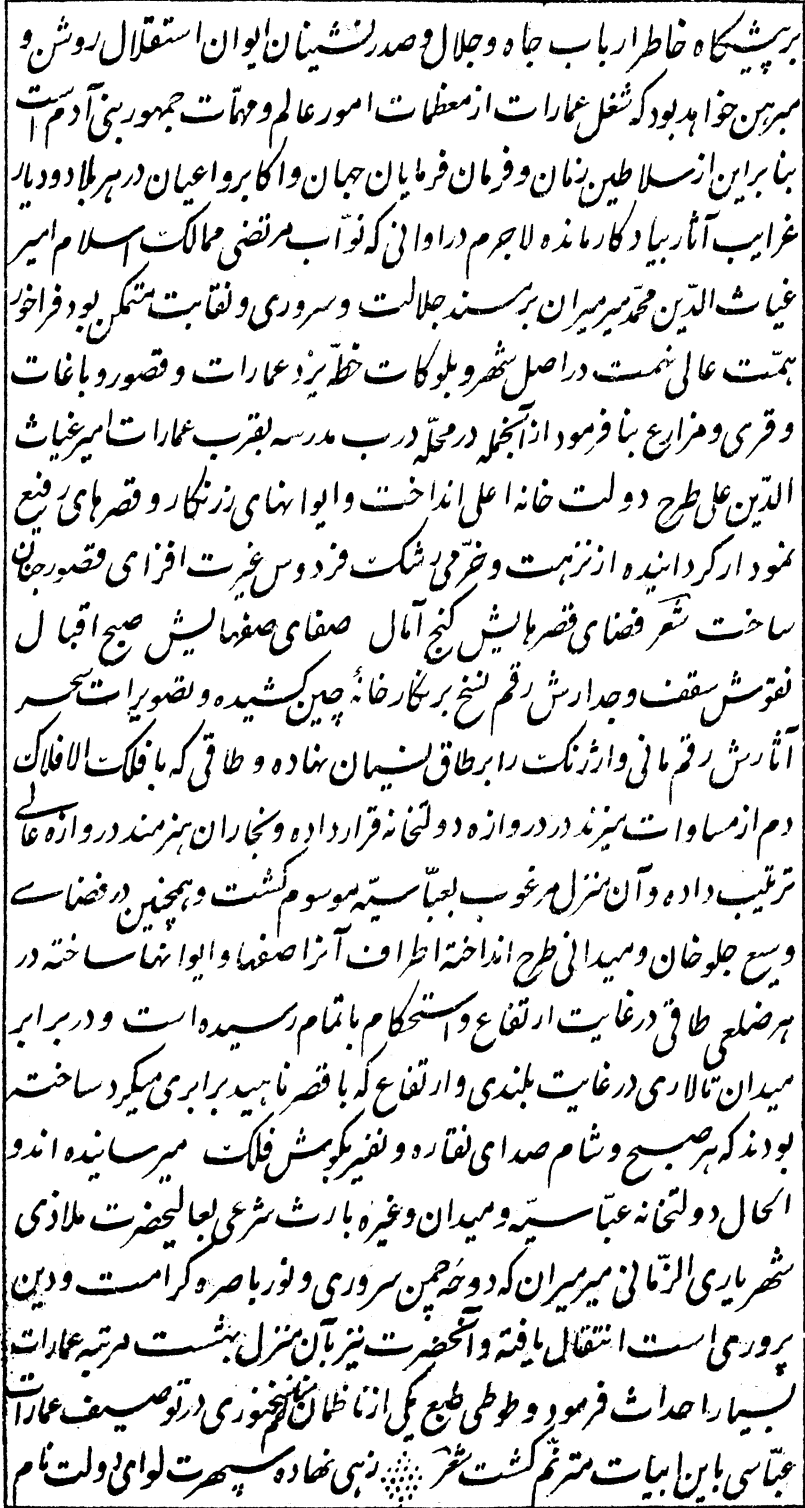 بر پیشگاه خاطر ارباب جاه و جلال و صدرنشینان ایوان استقلال روشن و
مبرهن خواهد بود که شغل عمارات از معظمات امور عالم و مهمّات جمهور بنی آدم است
بنابراین از سلاطین زمان و فرمان فرمایان جهان و اکابر و اعیان در هر بلاد و دیار
غرایب آثار بیادکار مانده لاجرم در اوانی که نوّاب مرتضی ممالک اسلام امیر
غیاث الدّین محمّد میرمیران بر مسند جلالت و سروری و نقابت متمکن بود فراخور
همّت عالی نهمت در اصل شهر و بلوکات خطّه یزد عمارات و قصور و باغات
و قری و مزارع بنا فرمود از آنجمله در محلّه درب مدرسه بقرب عمارات امیر غیاث
الدّین علی طرح دولت خانه اعلی انداخت و ایوانهای زرنکار و قصرهای رفیع
نمودار کردانیده از نزهت و خرّمی رشک فردوس غیرت افزای قصور جنان
ساخت شعر فضای قصرهایش کنج آمال صفای صفهایش صبح اقبال
نقوش سقف و جدارش رقم نسخ بر نکارخانهٔ چین کشیده و تصویرات سحر
آثارش رقم مانی و ارژنک را بر طاق نسیان نهاده و طاقی که با فلک الافلاک
دم از مساوات میزند در دروازه دولتخانه قرار داده و نجاران هنرمند دروازه عالی
ترتیب داده و آن منزل مرغوب بعبّاسیّه موسوم کشت و همچنین در فضای
وسیع جلوخان و میدانی طرح انداخته اطراف آنرا صفها و ایوانها ساخته در
هر ضلعی طاقی در غایت ارتفاع و استحکام باتمام رسیده است و در برابر
میدان تالاری در غایت بلندی و ارتفاع که با قصر ناهید برابری میکرد ساخته
بودند که هر صبح و شام صدای نقاره و نفیر بکوش فلک میرسانیده اند و
الحال دولتخانه عبّاسیّه و میدان و غیره بارث شرعی بعالیحضرت ملاذی
شهریاری الزّمانی میرمیران که دوحه چمن سروری و نور باصره کرامت و دین
پروری است انتقال یافته و آنحضرت نیز بآن منزل بهشت مرتبه عمارات
بسیار احداث فرمود و طوطی طبع یکی از ناظمان سخنوری در توصیف عمارات
عبّاسی باین ابیات مترنّم کشت شعر زهی نهاده سپهرت لوای دولت نام